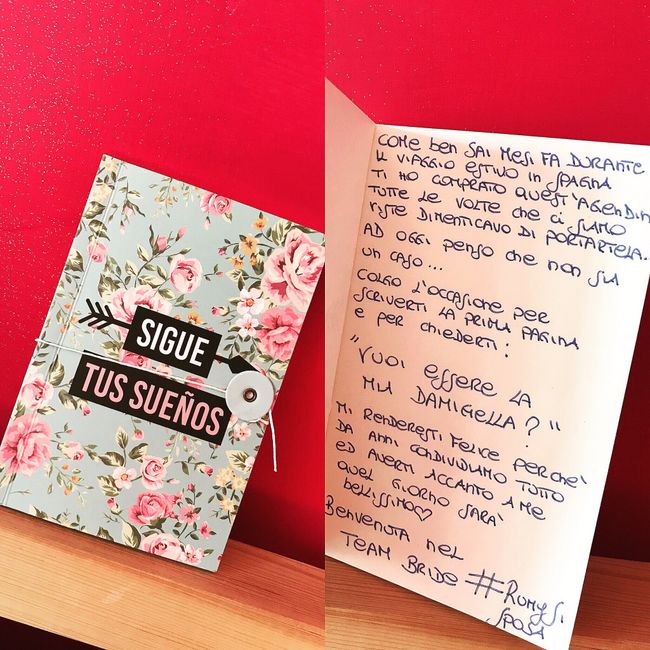 SIGUE
TUS SUEÑOS
COME BEN SAI MESI FA DURANTE
IL VIAGGIO ESTIVO IN SPAGNA
TI HO COMPRATO QUEST'AGENDIN
TUTTE LE VOLTE CHE CI SIAMO
VISTE DIMENTICAVO DI PORTARTELA...
AD OGGI PENSO CHE NON SIA
UN CASO...
COLGO L'OCCASIONE PER
SCRIVERTI LA PRIMA PAGINA
E PER CHIEDERTI:
"VUOI ESSERE LA
MIA DAMIGELLA?"
MI RENDERESTI FELICE PERCHE'
DA ANNI CONDIVIDIAMO TUTTO
ED AVERTI ACCANTO A ME
QUEL GIORNO SARA'
BELLISSIMO♡
BENVENUTA NEL
TEAM BRIDE #ROMYSI
SPOSA